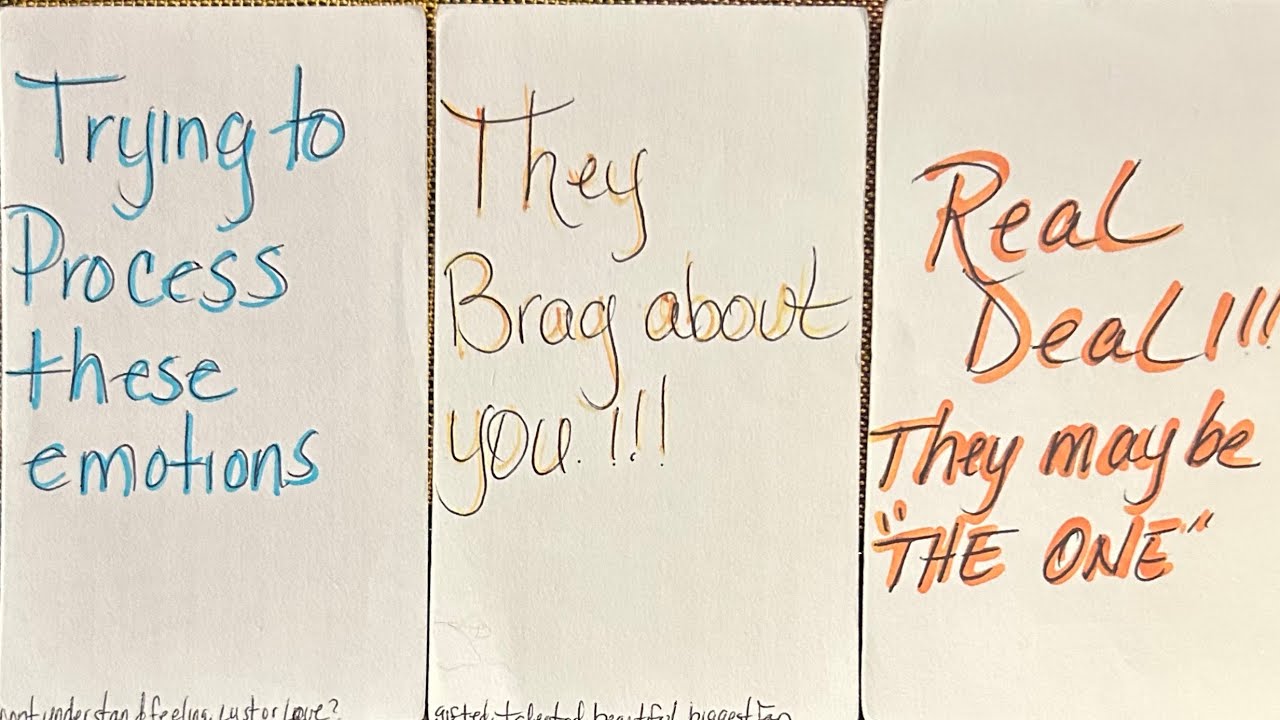 Trying to
Process
these
emotions
understand feeling. Lust or Love?
They
Brag about
you.!!!
gifted, talented, beautiful, biggest fan
Real
Deal!!!
They may be
"THE ONE"